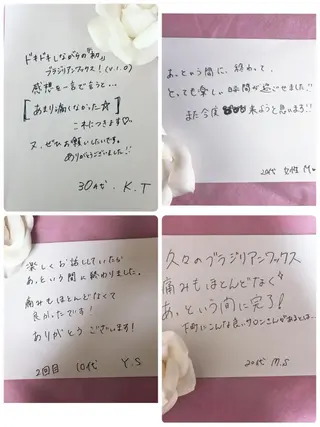 ドキドキしながらの『初』
ブラジリアンワックス!(V.I.O)
感想を一言で言うと…
[あまり痛くなかった☆]
これにつきます♡
又、ぜひお願いしたいです。
ありがとうございました!!
30代 . K.T
あっという間に、終わって、
とっても楽しい時間が過ごせました!!
また今度 来ようと思いまう!!
20代 女性 M
楽しくお話ししていたら
あっという間に終わりました。
痛みもほとんどなくて
良かったです!
ありがとうございます!
2回目 10代 Y.S
久々のブラジリアンワックス
痛みもほとんどなく
あっという間に完了!
下町にこんな良いサロンさんがあるとは…
20代 M.S